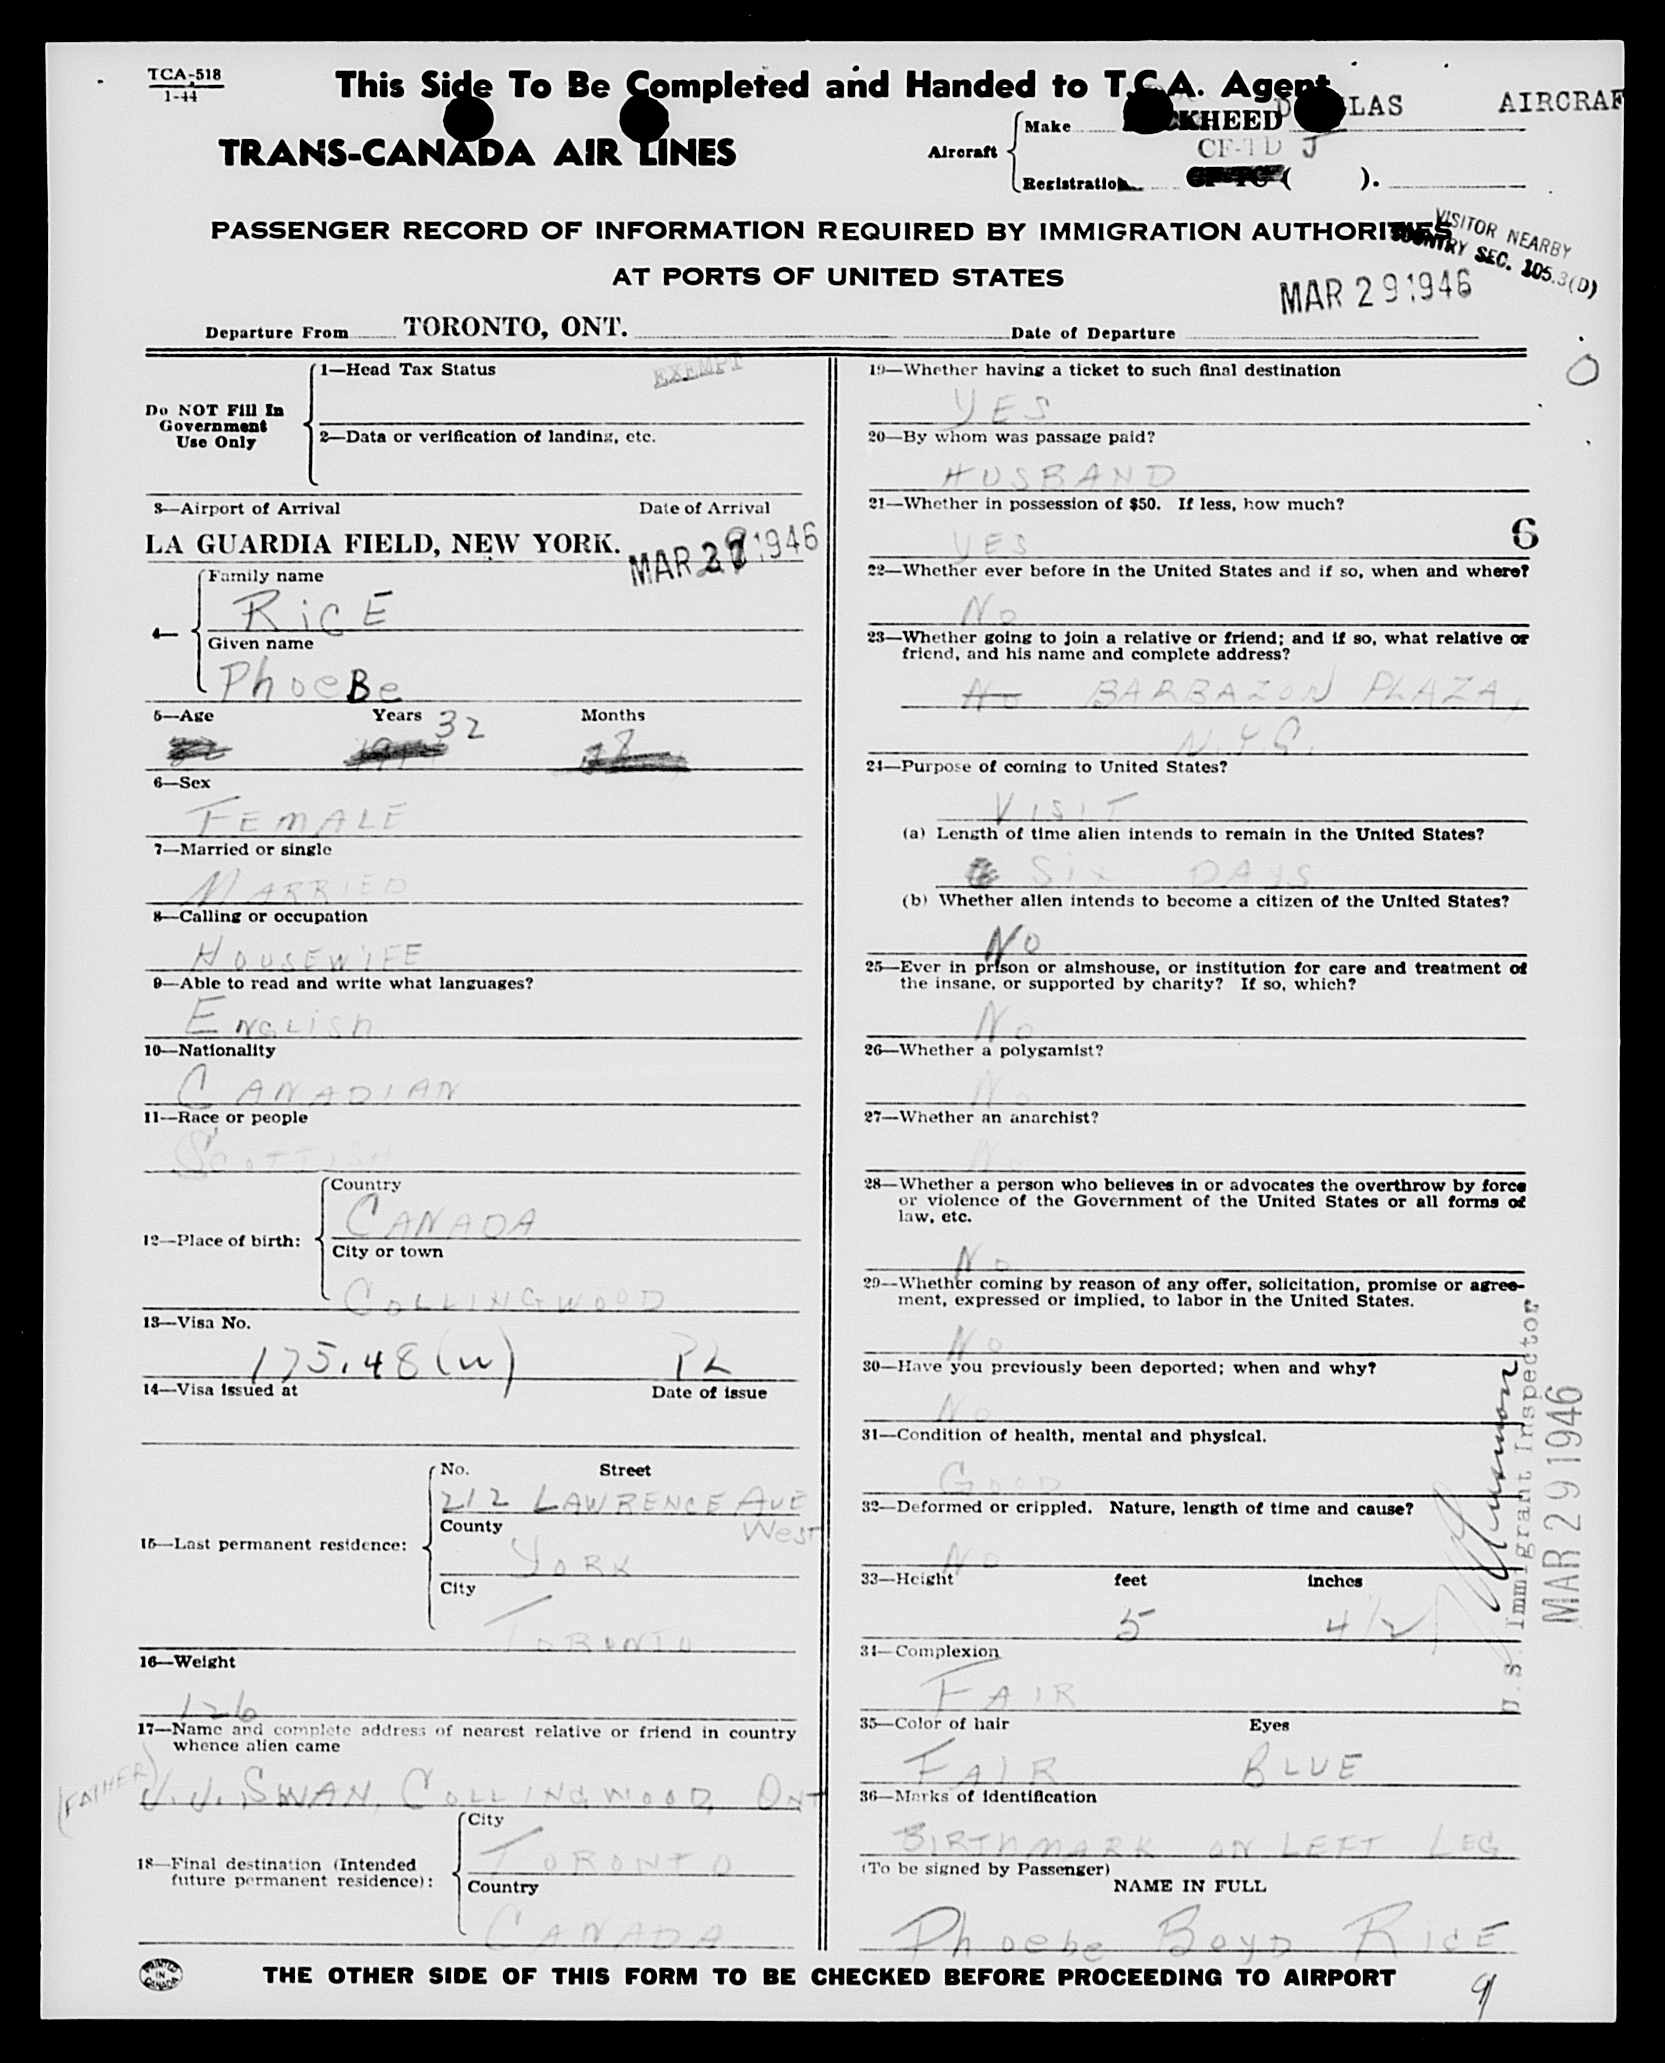 TCA-518
1-44
This Side To Be Completed and Handed to T.C.A. Agent
TRANS-CANADA AIR LINES
Aircraft
Make LAS AIRCRAF
CF-TD J
Registration ( ).
PASSENGER RECORD OF INFORMATION REQUIRED BY IMMIGRATION AUTHORITIES
AT PORTS OF UNITED STATES
VISITOR NEARBY
COUNTRY SEC. 105.3(D)
MAR 29 1946
Departure From TORONTO, ONT. Date of Departure
Do NOT Fill In
Government
Use Only
1—Head Tax Status EXEMPT
2—Data or verification of landing, etc.
3—Airport of Arrival Date of Arrival
LA GUARDIA FIELD, NEW YORK. MAR 29 1946
4—
Family name
RicE
Given name
PhoeBe
5—Age Years 32 Months
6—Sex
FEMALE
7—Married or single
MARRIED
8—Calling or occupation
HOUSEWIFE
9—Able to read and write what languages?
ENGLish
10—Nationality
CANADIAN
11—Race or people
SCOTTISH
12—Place of birth:
Country
CANADA
City or town
COLLINGWOOD
13—Visa No.
175.48 (w) PL
14—Visa issued at Date of issue
15—Last permanent residence:
No. Street
212 LAWRENCE AVE
West
County
YORK
City
TORONTO
16—Weight
126
17—Name and complete address of nearest relative or friend in country
whence alien came
(FATHER) J. J. SWAN, COLLINGWOOD, ONT
18—Final destination (Intended
future permanent residence):
City
TORONTO
Country
CANADA
19—Whether having a ticket to such final destination
YES
20—By whom was passage paid?
HUSBAND
21—Whether in possession of $50. If less, how much?
YES
6
22—Whether ever before in the United States and if so, when and where?
No
23—Whether going to join a relative or friend; and if so, what relative or
friend, and his name and complete address?
No BARBAZON PLAZA,
N.Y.C.
24—Purpose of coming to United States?
VISIT
(a) Length of time alien intends to remain in the United States?
Six DAYS
(b) Whether alien intends to become a citizen of the United States?
No
25—Ever in prison or almshouse, or institution for care and treatment of
the insane, or supported by charity? If so, which?
No
26—Whether a polygamist?
No
27—Whether an anarchist?
No
28—Whether a person who believes in or advocates the overthrow by force
or violence of the Government of the United States or all forms of
law, etc.
No
29—Whether coming by reason of any offer, solicitation, promise or agree-
ment, expressed or implied, to labor in the United States.
No
30—Have you previously been deported; when and why?
No
31—Condition of health, mental and physical.
GOOD
32—Deformed or crippled. Nature, length of time and cause?
No
33—Height feet inches
5 4 1/2
34—Complexion
FAIR
35—Color of hair Eyes
FAIR BLUE
36—Marks of identification
BIRTHMARK ON LEFT LEG
(To be signed by Passenger)
NAME IN FULL
Phoebe Boyd RICE
U.S. Immigrant Inspector
MAR 29 1946
PRINTED IN CANADA
THE OTHER SIDE OF THIS FORM TO BE CHECKED BEFORE PROCEEDING TO AIRPORT
9